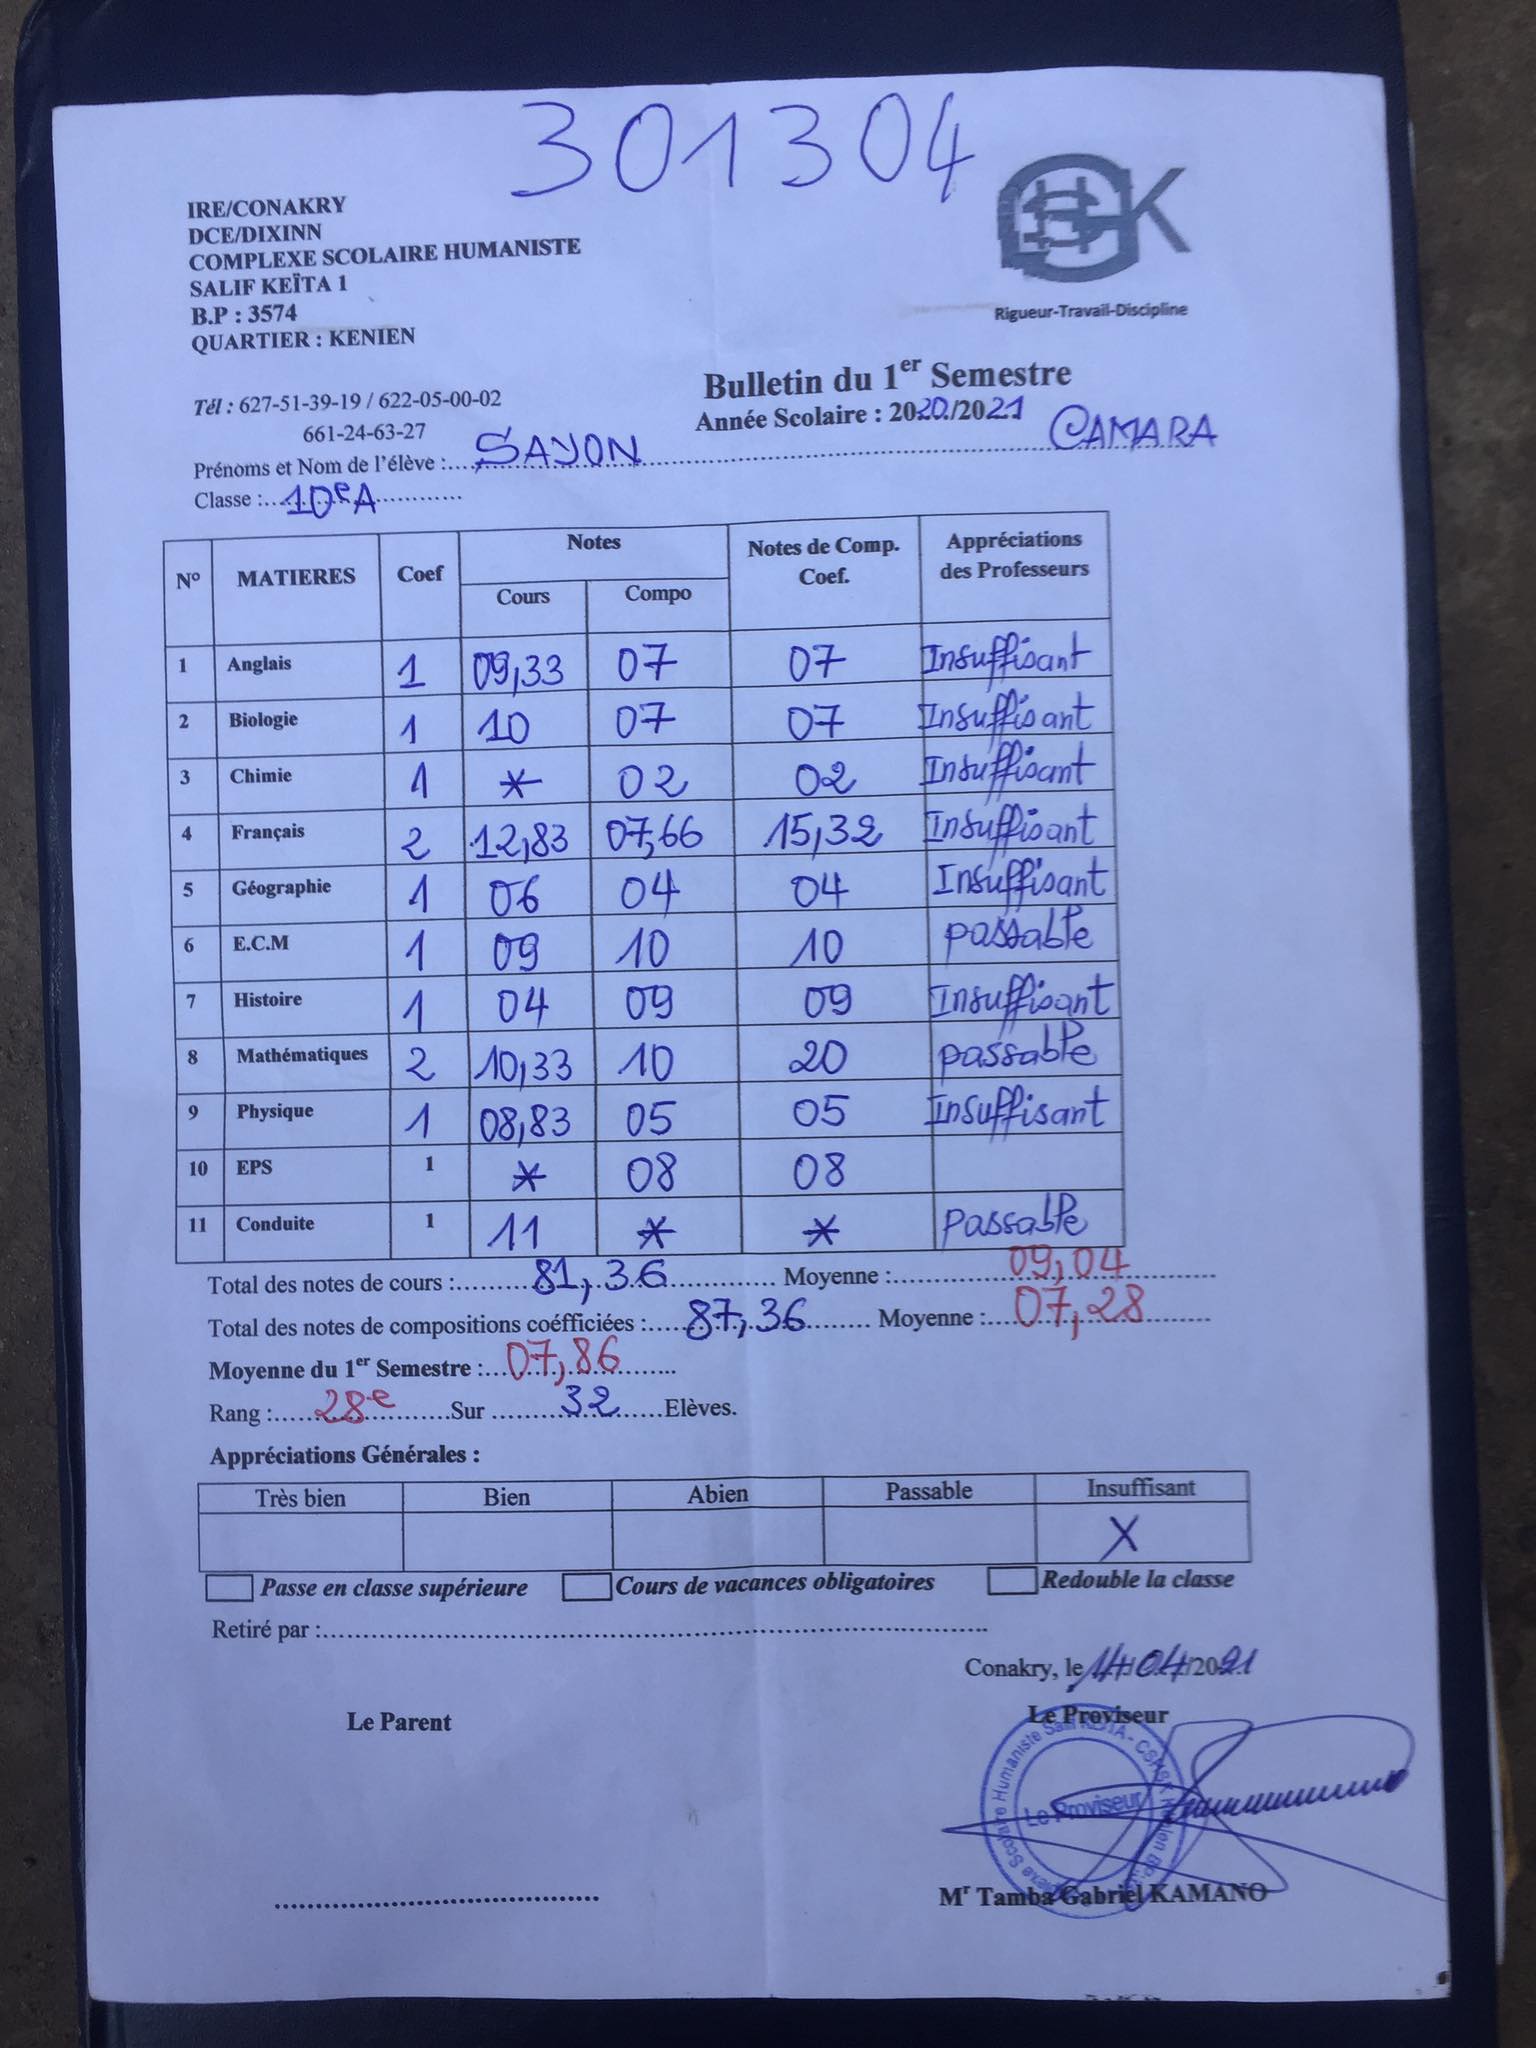 301304
IRE/CONAKRY
DCE/DIXINN
COMPLEXE SCOLAIRE HUMANISTE
SALIF KEÏTA 1
B.P : 3574
QUARTIER : KENIEN
Rigueur-Travail-Discipline
Tél : 627-51-39-19 / 622-05-00-02
661-24-63-27
Bulletin du 1er Semestre
Année Scolaire : 2020/2021
Prénoms et Nom de l'élève : SAYON CAMARA
Classe : 10eA
N° MATIERES Coef Notes Notes de Comp. Coef. Appréciations des Professeurs
Cours Compo
1 Anglais 1 09,33 07 07 Insuffisant
2 Biologie 1 10 07 07 Insuffisant
3 Chimie 1 * 02 02 Insuffisant
4 Français 2 12,83 07,66 15,32 Insuffisant
5 Géographie 1 06 04 04 Insuffisant
6 E.C.M 1 09 10 10 passable
7 Histoire 1 04 09 09 Insuffisant
8 Mathématiques 2 10,33 10 20 passable
9 Physique 1 08,83 05 05 Insuffisant
10 EPS 1 * 08 08
11 Conduite 1 11 * * Passable
Total des notes de cours : 81,36 Moyenne : 09,04
Total des notes de compositions coéfficiées : 87,36 Moyenne : 07,28
Moyenne du 1er Semestre : 07,86
Rang : 28e Sur 32 Elèves.
Appréciations Générales :
Très bien Bien Abien Passable Insuffisant
X
Passe en classe supérieure Cours de vacances obligatoires Redouble la classe
Retiré par :
Conakry, le 14/04/2021
Le Parent Le Proviseur
Le Proviseur
Mr Tamba Gabriel KAMANO